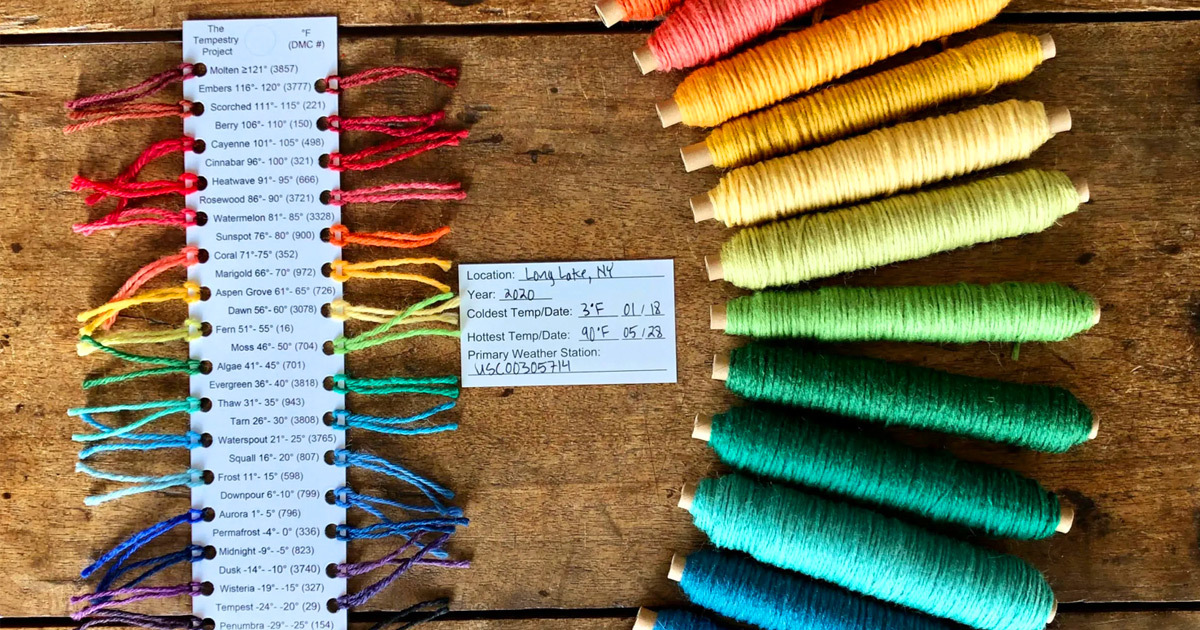 The
Tempestry
Project
°F
(DMC #)
Molten ≥121° (3857)
Embers 116°- 120° (3777)
Scorched 111°- 115° (221)
Berry 106°- 110° (150)
Cayenne 101°- 105° (498)
Cinnabar 96°- 100° (321)
Heatwave 91°- 95° (666)
Rosewood 86°- 90° (3721)
Watermelon 81°- 85° (3328)
Sunspot 76°- 80° (900)
Coral 71°-75° (352)
Marigold 66°- 70° (972)
Aspen Grove 61°- 65° (726)
Dawn 56°- 60° (3078)
Fern 51°- 55° (16)
Moss 46°- 50° (704)
Algae 41°- 45° (701)
Evergreen 36°- 40° (3818)
Thaw 31°- 35° (943)
Tarn 26°- 30° (3808)
Waterspout 21°- 25° (3765)
Squall 16°- 20° (807)
Frost 11°- 15° (598)
Downpour 6°-10° (799)
Aurora 1°- 5° (796)
Permafrost -4°- 0° (336)
Midnight -9°- -5° (823)
Dusk -14°- -10° (3740)
Wisteria -19°- -15° (327)
Tempest -24°- -20° (29)
Penumbra -29°- -25° (154)
Location: Long Lake, NY
Year: 2020
Coldest Temp/Date: 3°F 01/18
Hottest Temp/Date: 90°F 05/28
Primary Weather Station:
USC00305714